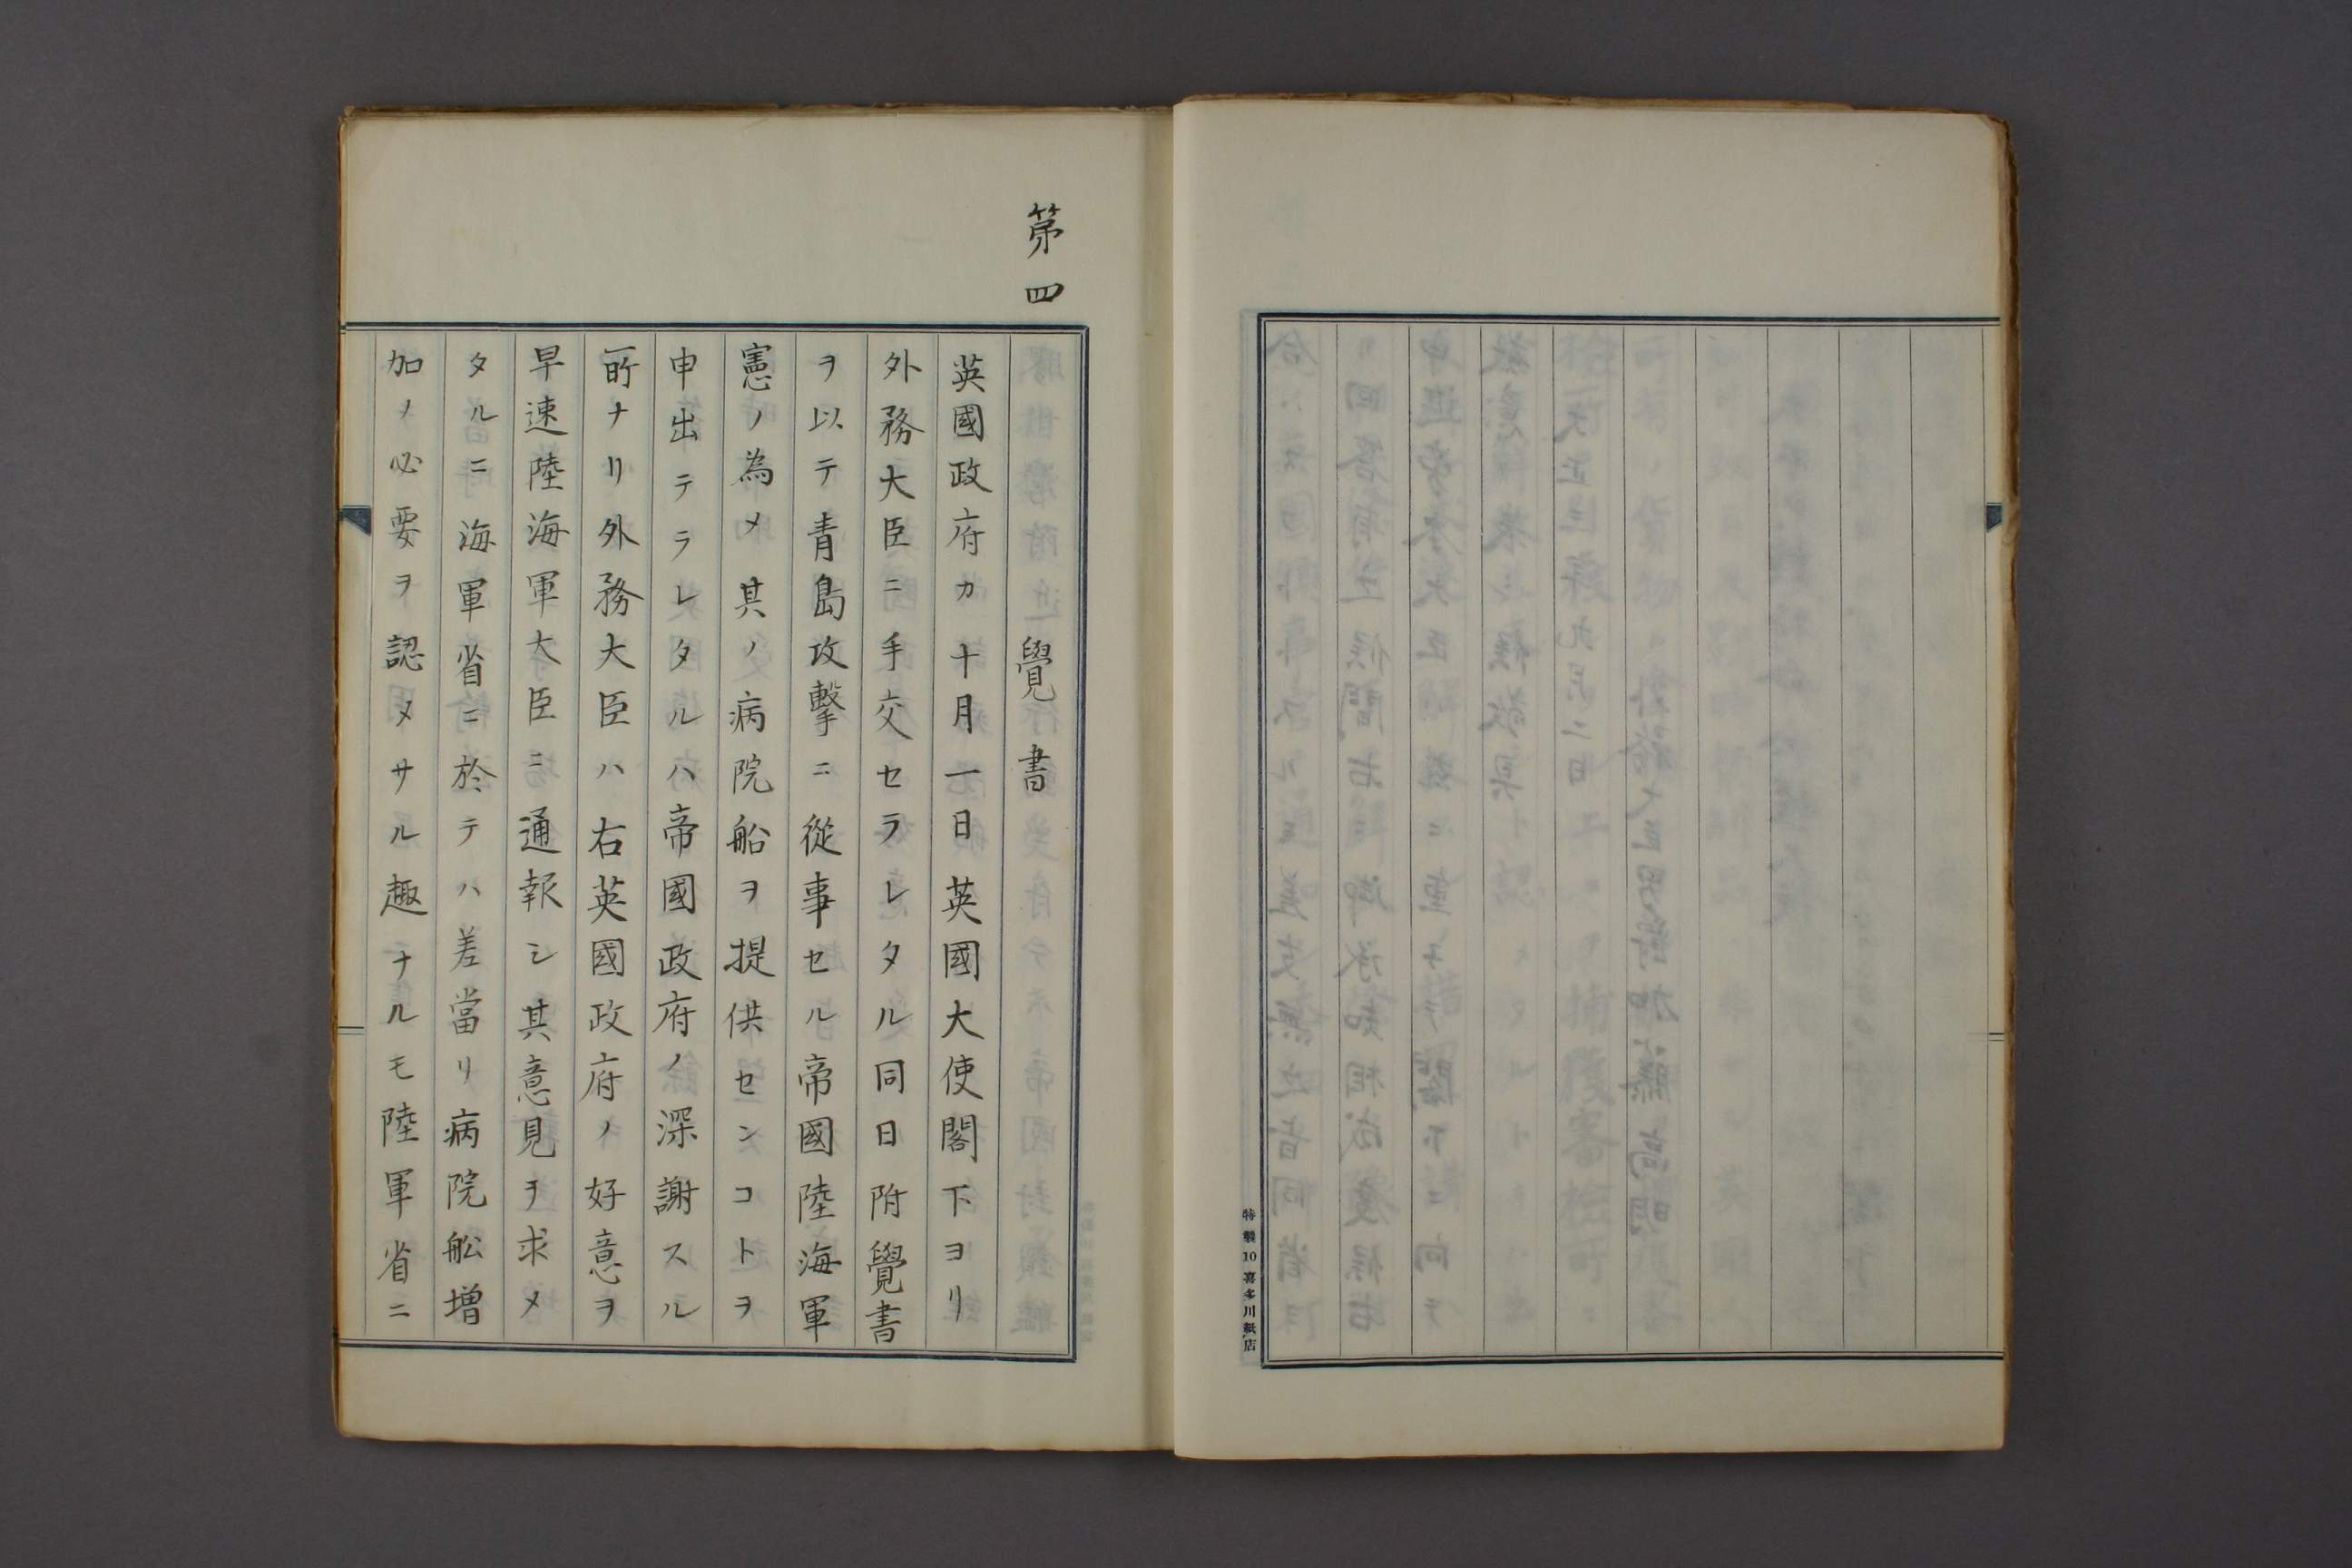 特製10喜多川紙店
第四
覺書
英國政府カ十月一日英國大使閣下ヨリ
外務大臣ニ手交セラレタル同日附覺書
ヲ以テ青島攻擊ニ從事セル帝國陸海軍
憲ノ為メ其ノ病院船ヲ提供センコトヲ
申出テラレタルハ帝國政府ノ深謝スル
所ナリ外務大臣ハ右英國政府ノ好意ヲ
早速陸海軍大臣ニ通報シ其意見ヲ求メ
タルニ海軍省ニ於テハ差當リ病院舩増
加ノ必要ヲ認メサル趣ナルモ陸軍省ニ